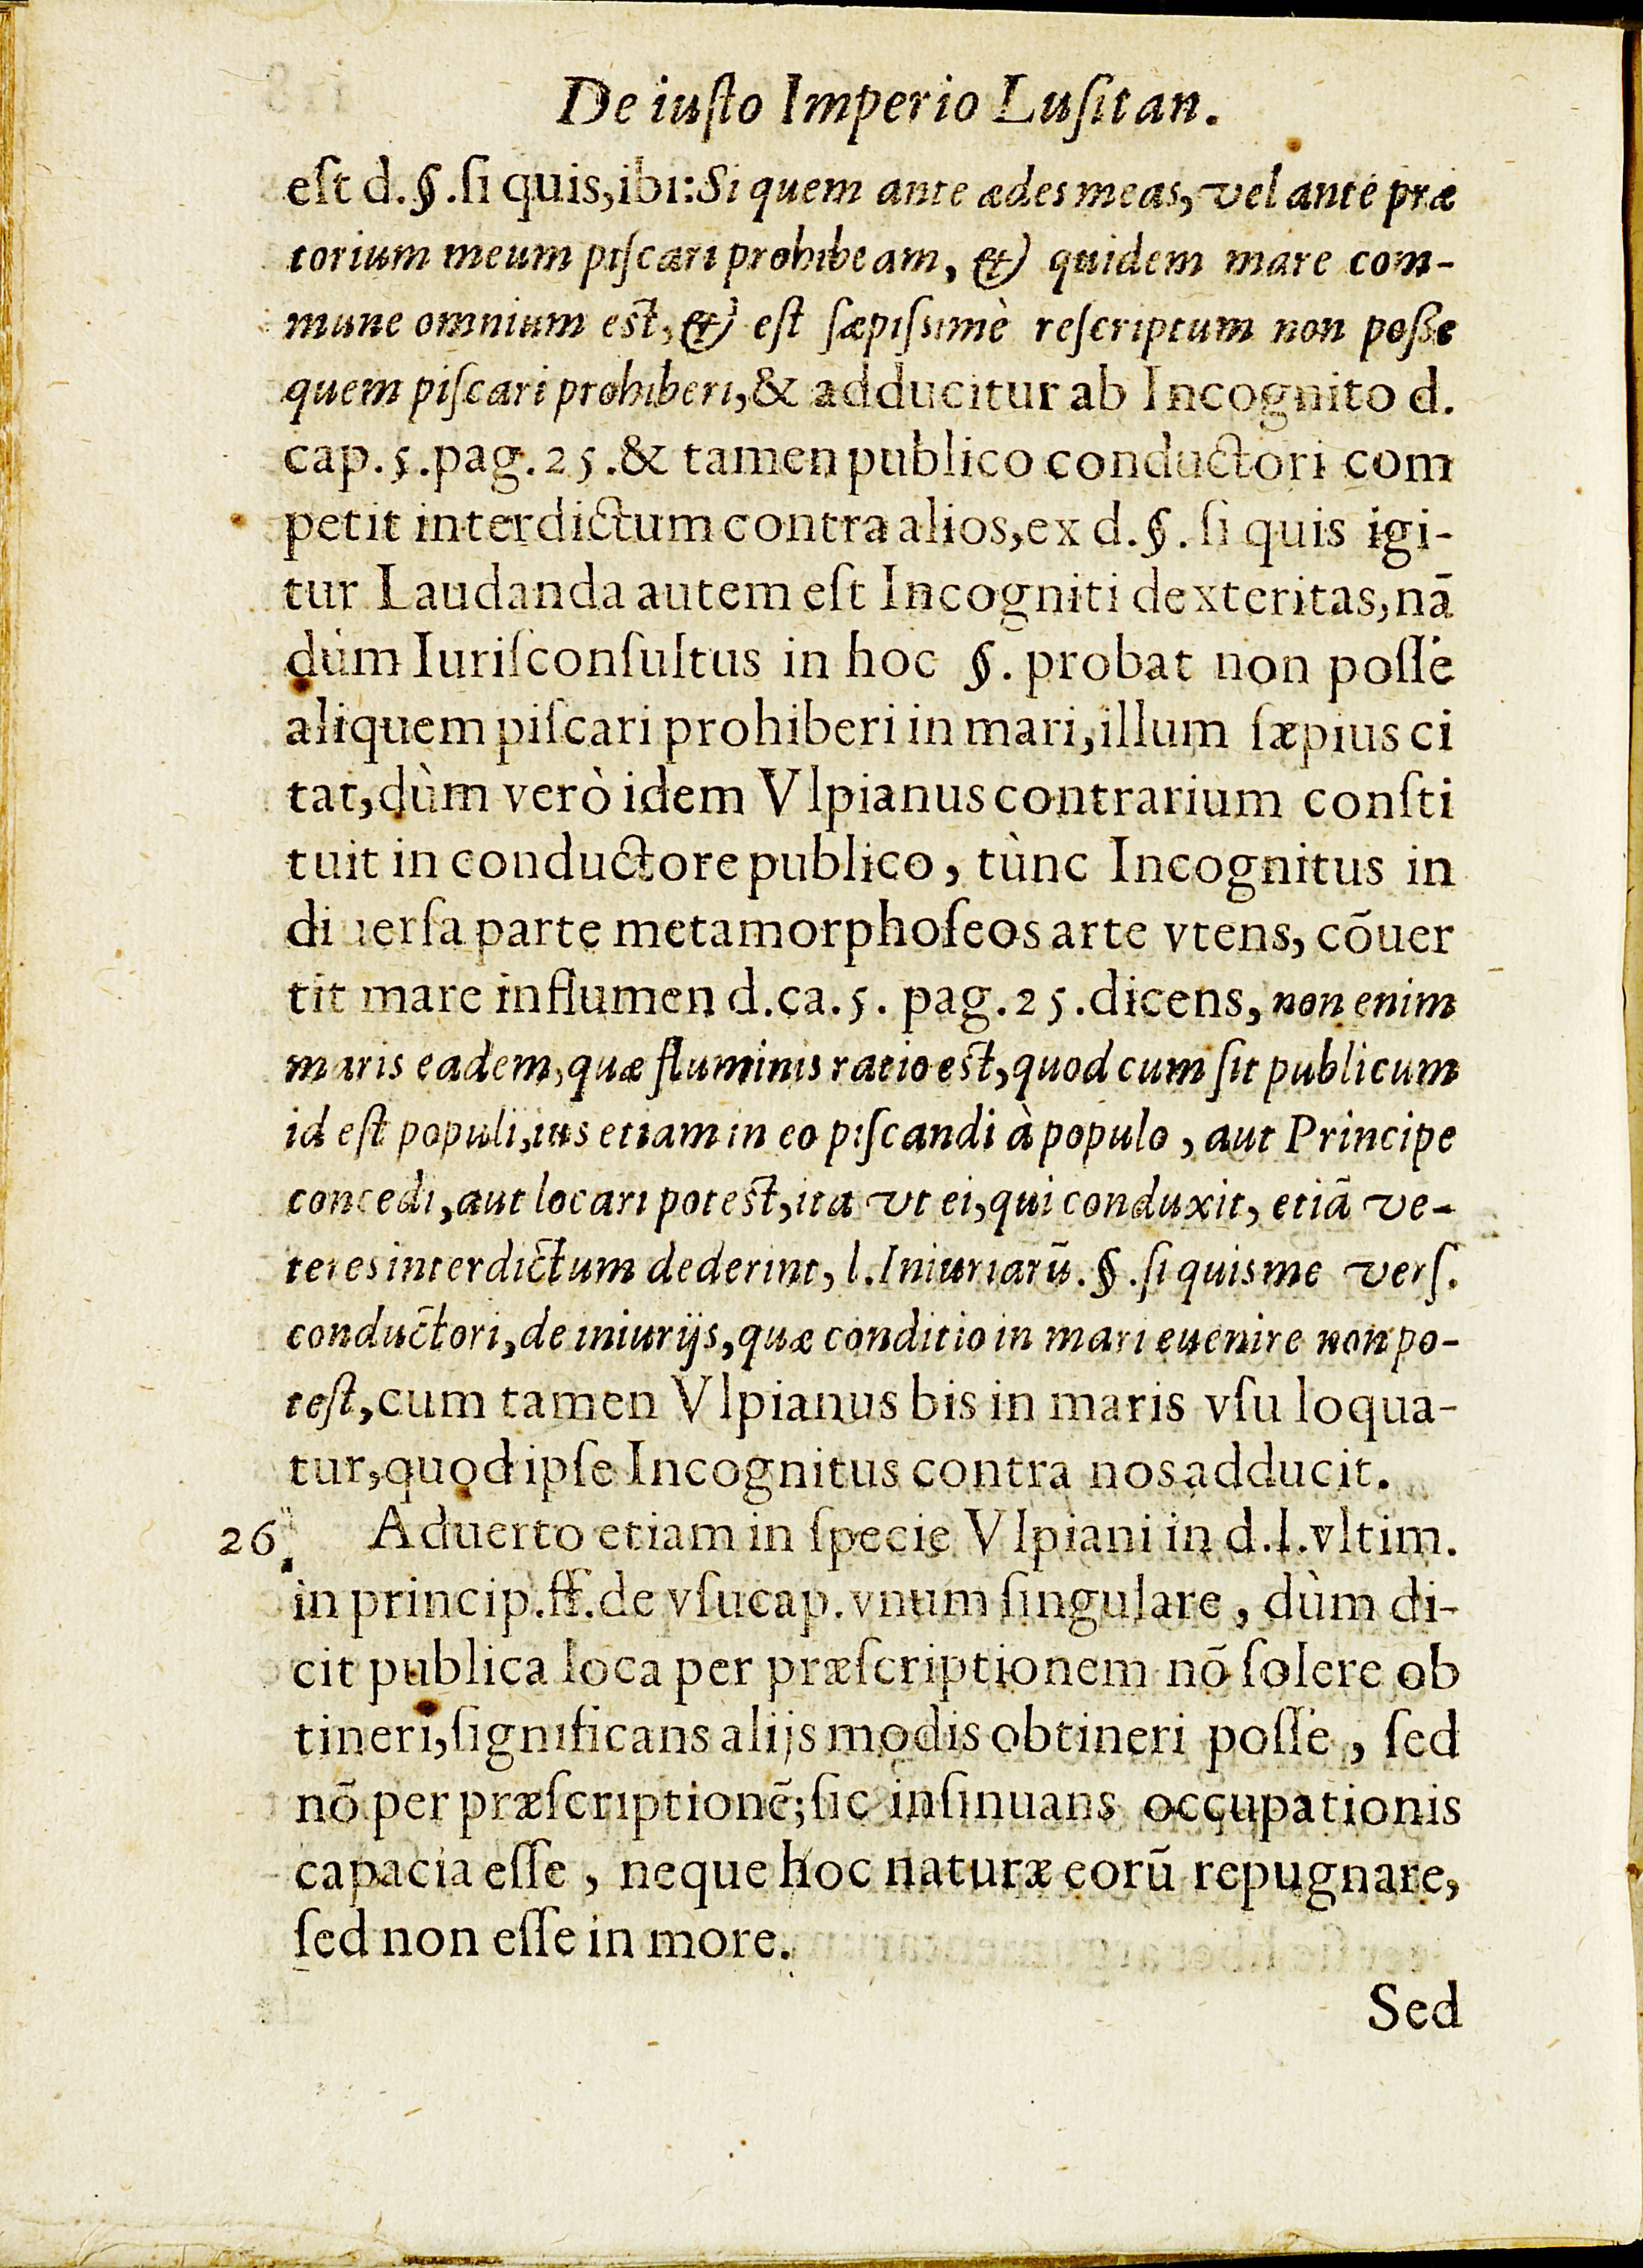 De iuſto Imperio Luſitan.
eſt d. §. ſi quis, ibi: Si quem ante ædes meas, vel ante præ
torium meum piſcari prohibeam, & quidem mare com-
mune omnium eſt, & eſt ſæpiſsimè reſcriptum non poſſe
quem piſcari prohiberi, & adducitur ab Incognito d.
cap. 5. pag. 25. & tamen publico conductori com
petit interdictum contra alios, ex d. §. ſi quis igi-
tur Laudanda autem eſt Incogniti dexteritas, nã
dùm Iuriſconſultus in hoc §. probat non poſſe
aliquem piſcari prohiberi in mari, illum ſæpius ci
tat, dùm verò idem Vlpianus contrarium conſti
tuit in conductore publico, tùnc Incognitus in
diuerſa parte metamorphoſeos arte vtens, cõuer
tit mare in flumen d. ca. 5. pag. 25. dicens, non enim
maris eadem, quæ fluminis ratio eſt, quod cum ſit publicum
id eſt populi, ius etiam in eo piſcandi à populo, aut Principe
concedi, aut locari poteſt, ita vt ei, qui conduxit, etiã ve-
teres interdictum dederint, l. Iniuriarũ. §. ſi quis me verſ.
conductori, de iniurijs, quæ conditio in mari euenire non po-
teſt, cum tamen Vlpianus bis in maris vſu loqua-
tur, quod ipſe Incognitus contra nos adducit.
26. Aduerto etiam in ſpecie Vlpiani in d. l. vltim.
in princip. ff. de vſucap. vnum ſingulare, dùm di-
cit publica loca per præſcriptionem nõ ſolere ob
tineri, ſignificans alijs modis obtineri poſſe, ſed
nõ per præſcriptionẽ; ſic inſinuans occupationis
capacia eſſe, neque hoc naturæ eorũ repugnare,
ſed non eſſe in more.
Sed